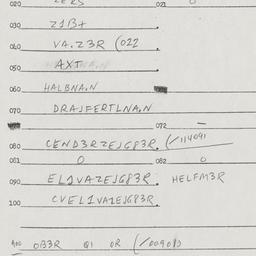 020 ZERS 021 0
030 Z1B7
040 VA.Z3R (022
050 AXT
060 HALBNA.N
070 DRAJFERTLNA.N
072 —
080 CEND3RZEJG83R (/114091
081 0 082 0
090 EL1VAZEJG83R HELFM3R
100 CVEL1VAZEJG83R.
A00 OB3R Q1 OR (/00908)